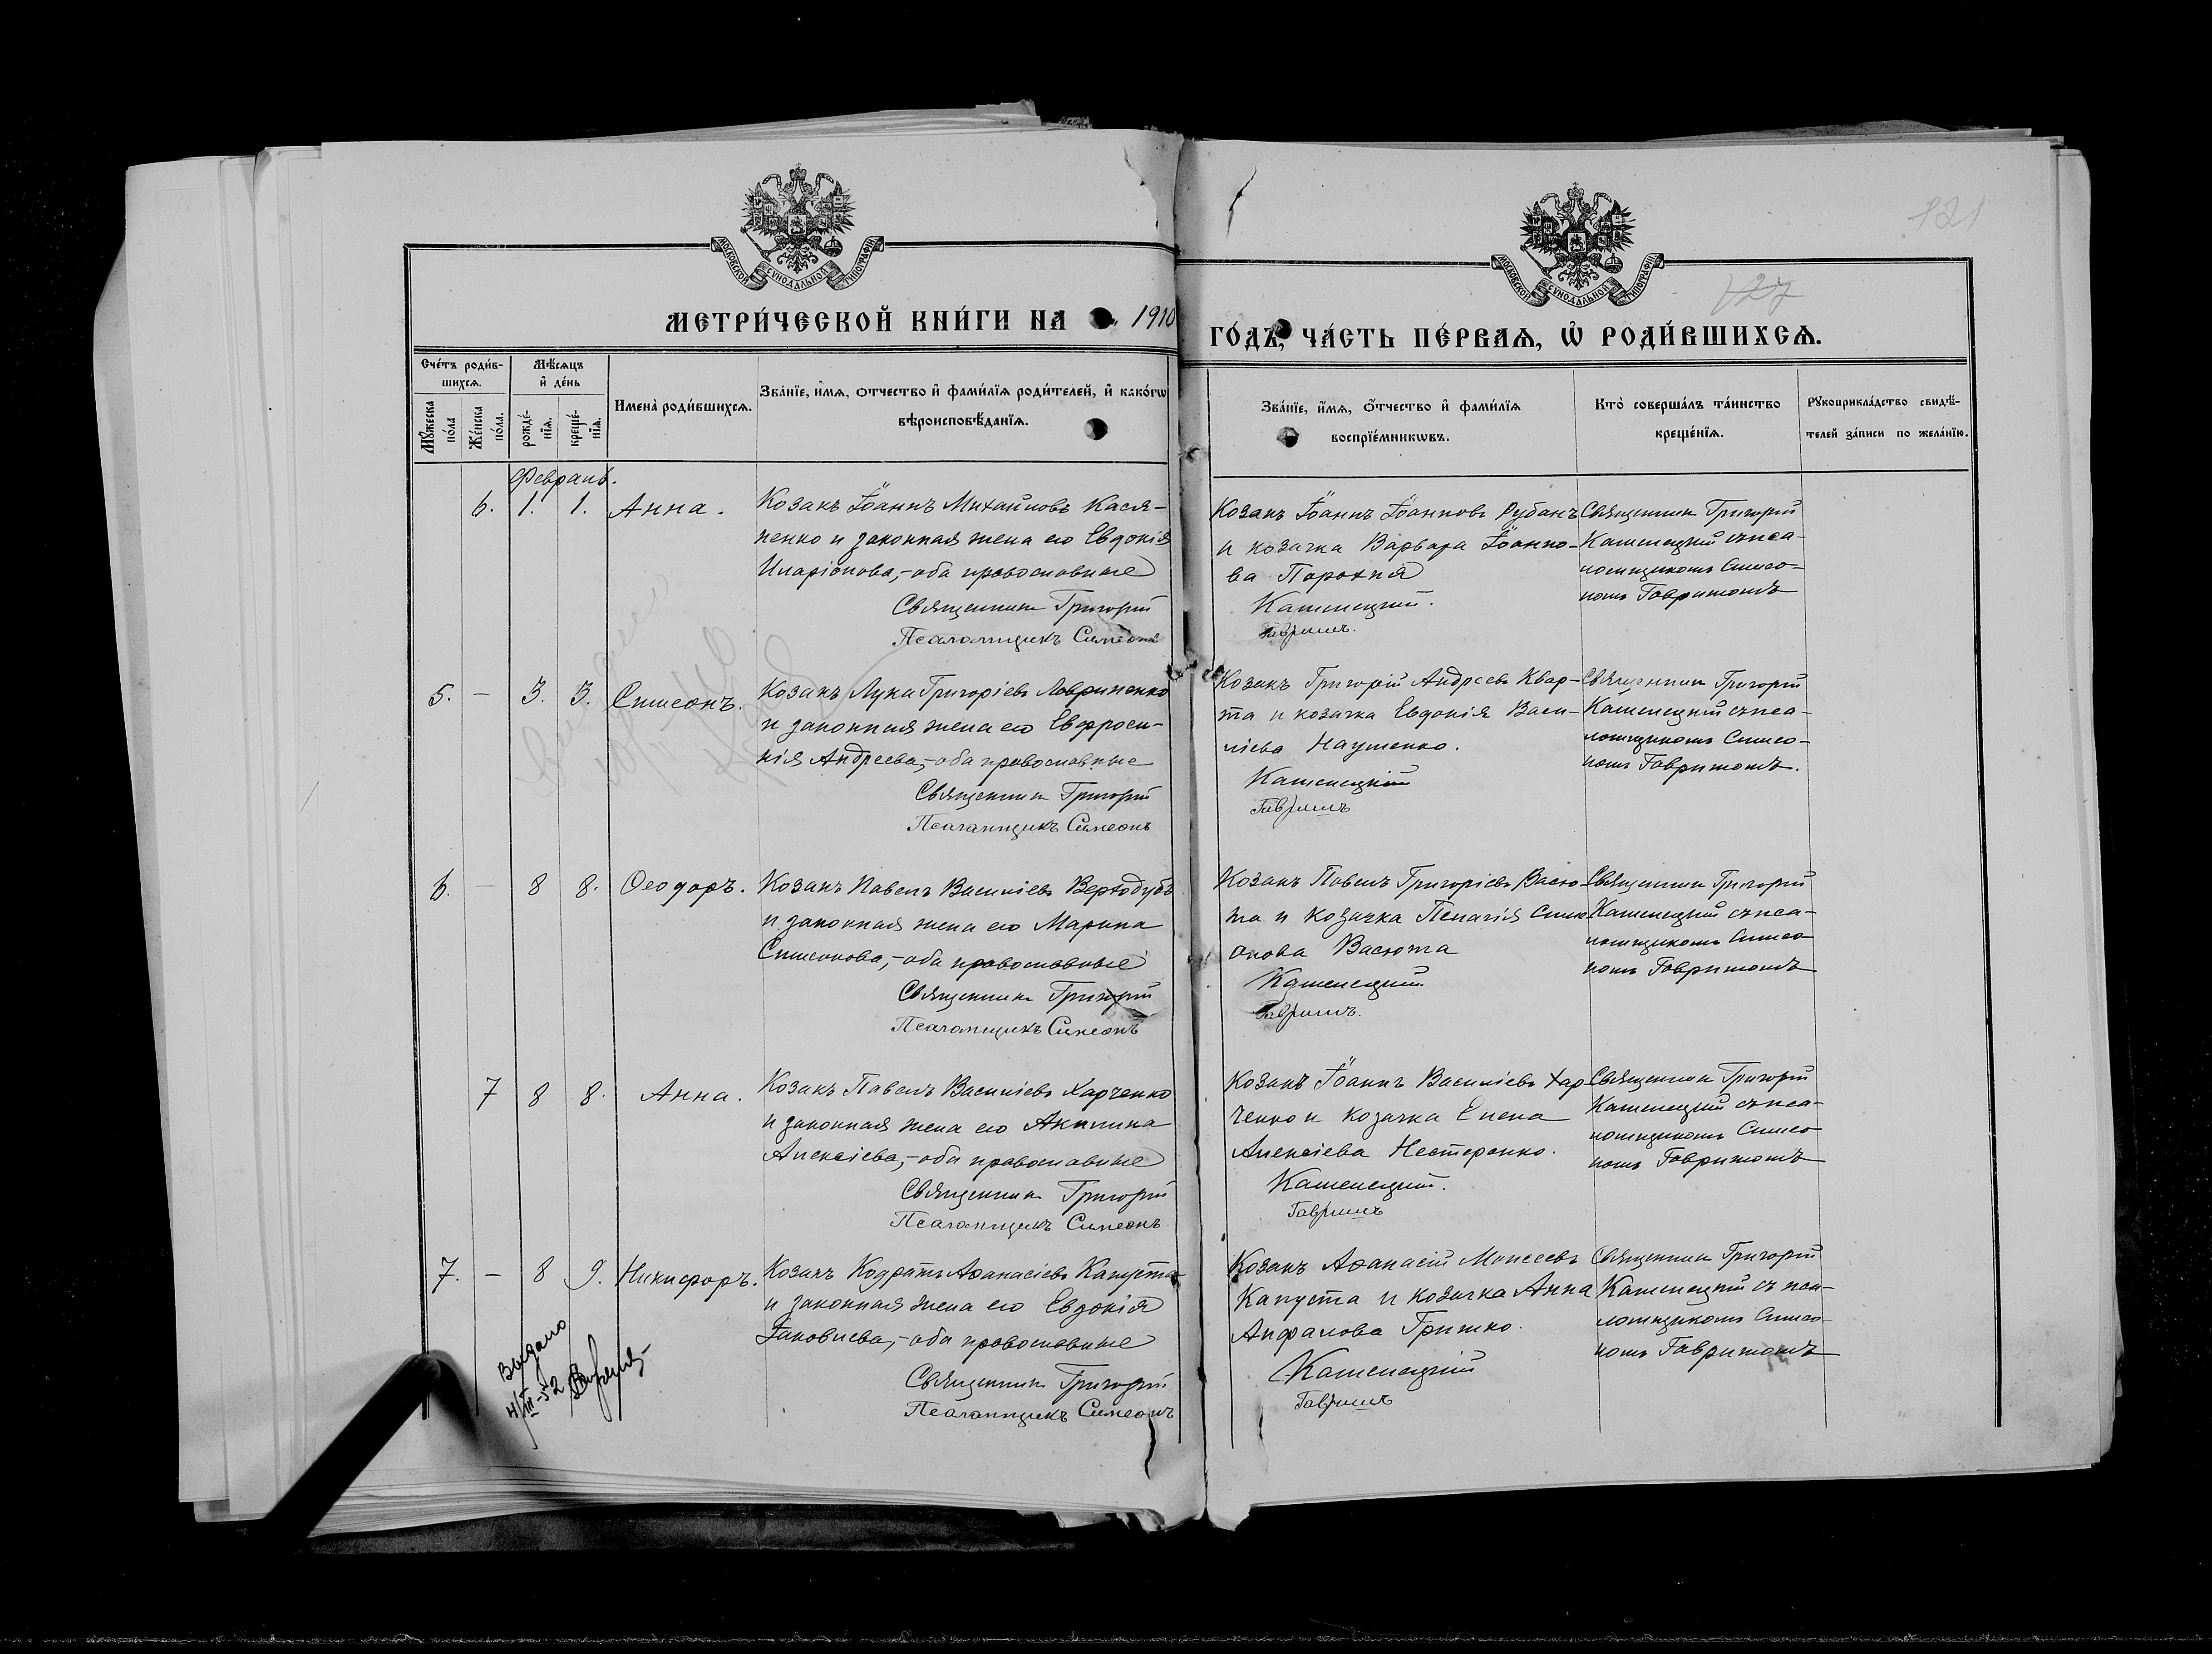 121
127
МОСКОВСКОЙ СѴНОДАЛЬНОЙ ТИПОГРАФІИ
МОСКОВСКОЙ СѴНОДАЛЬНОЙ ТИПОГРАФІИ
МЕТРИ́ЧЕСКОЙ КНИ́ГИ НА 1910 ГО́ДЪ, ЧА́СТЬ ПЕ́РВАѦ, Ѡ҆ РОДИ́ВШИХСѦ.
Сче́тъ роди́в-
шихсѧ.
Мꙋ́жеска
по́ла
Же́нска
по́ла.
Мѣ́сѧцъ
и҆ де́нь
рожде́-
нїѧ.
креще́-
нїѧ.
Имена̀ роди́вшихсѧ.
Зва́нїе, и҆́мѧ, ѻ҆́тчество и҆ фами́лїѧ роди́телей, и҆ како́гѡ
вѣроисповѣ́данїѧ.
Зва́нїе, и҆́мѧ, ѻ҆́тчество и҆ фами́лїѧ
воспрїе́мникѡвъ.
Кто̀ соверша́лъ та́инство
креще́нїѧ.
Рꙋкоприкла́дство свидѣ́-
телей за́писи по жела́нїю.
Февраль.
6. 1. 1. Анна.
Козакъ Іоаннъ Михайловъ Кася-
ненко и законная жена его Евдокія
Иларіонова,- оба православные
Священникъ Григорій
Псаломщикъ Симеонъ
Козакъ Іоаннъ Іоанновъ Рубанъ
и козачка Варвара Іоанно-
ва Порохня
Каменецкий.
Гавришъ.
Священникъ Григорій
Каменецкій съ пса-
ломщикомъ Симео-
номъ Гавришомъ
5. - 3. 3. Симеонъ.
Козакъ Лука Григоріевъ Лавриненко
и законная жена его Евфроси-
нія Андреева,- оба православные
Священникъ Григорій
Псаломщикъ Симеонъ
Козакъ Григорій Андреевъ Квар-
та и козачка Евдокія Васи-
ліева Науменко.
Каменецкій
Гавришъ
Священникъ Григорій
Каменецкій съ пса-
ломщикомъ Симео-
номъ Гавришомъ.
6. - 8 8. Ѳеодоръ.
Козакъ Павелъ Василіевъ Вертодубъ
и законная жена его Марина
Симеонова,- оба православные
Священникъ Григорій
Псаломщикъ Симеонъ
Козакъ Павелъ Григоріевъ Васю-
та и козачка Пелагія Симе-
онова Васюта
Каменецкий
Гавришъ.
Священникъ Григорій
Каменецкій съ пса-
ломщикомъ Симео
номъ Гавришомъ
7 8 8. Анна.
Козакъ Павелъ Василіевъ Харченко
и законная жена его Акилина
Алексіева,- оба православные
Священникъ Григорій
Псаломщикъ Симеонъ
Козакъ Іоаннъ Василіевъ Хар-
ченко и козачка Елена
Алексіева Нестеренко.
Каменецкий.
Гавришъ
Священникъ Григорій
Каменецкій съ пса-
ломщикомъ Симео
номъ Гавришомъ
7. - 8 9. Никифоръ.
Козакъ Кодратъ Аѳанасіевъ Капуста
и законная жена его Евдокія
Іаковлева,- оба православные
Священникъ Григорій
Псаломщикъ Симеонъ
Козакъ Аѳанасій Моисеевъ
Капуста и козачка Анна
Анфалова Гришко.
Каменецкій
Гавришъ
Священникъ Григорій
Каменецкій съ пса-
ломщикомъ Симео-
номъ Гавришомъ
Выдано
4/III-52